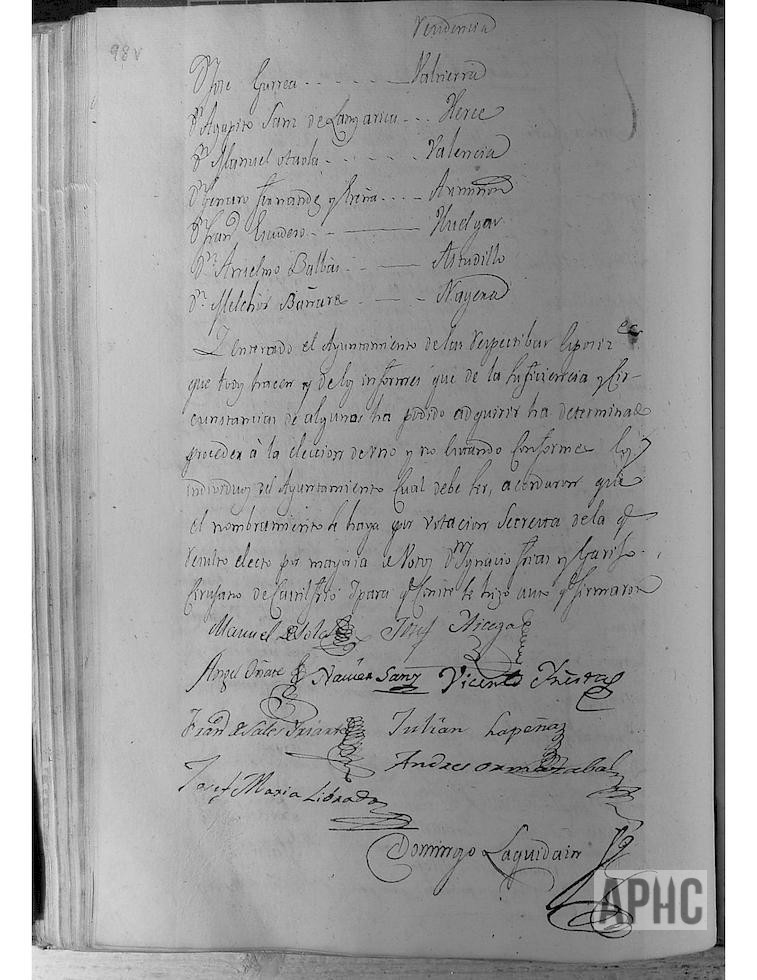 98v
Residencia
Dn Jose Gurrea - - - - - Valtierra
Dn Agapito Sanz de Lanzarica - - - Herce
Dn Manuel otaola - - - - - Valencia
Dn Genaro Fernandez y - - - - Armiñon
Dn Franco Escudero - - Huelgas
Dn Anselmo Balbas - - Astudillo
Dn Melchor Bañares - - - Nagera
Y enterado el Ayuntamiento de las respectibas
que hacen y de los informes que de la suficiencia y Cir-
cunstancias de algunos ha podido adquirir ha determinado
proceder à la eleccion de uno y no estando Conformes los
individuos del Ayuntamiento Cual debe ser, acordaron que
el nombramiento se haga por votacion Secreta de la q.e
resulto electo por mayoria de Votos Dn Ignacio y
Cirujano de y para q.e Conste se hizo auto q.e firmaron
Manuel de Sola Josef
Angel Oñate Xavier Sanz Vicente
Franco de Sales Iriarte Julian Lapeña
Andres Ormazabal
Josef Maria Librado
Domingo Laquidain
APHC